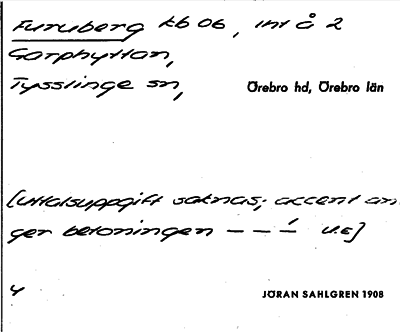 Furuberg kb 06, int å 2
Garphyttan,
Tysslinge sn,
Örebro hd, Örebro län
[Uttalsuppgift saknas; accent an
ger betoningen – – –́ u.e]
4
JÖRAN SAHLGREN 1908